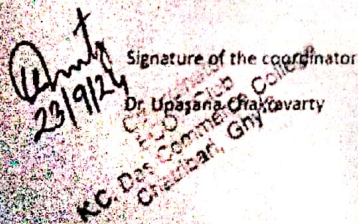 Signature of the coordinator
23/9/24
Dr. Upasana Chakravarty
K.C. Das Commerce College
Chatribari, Ghy